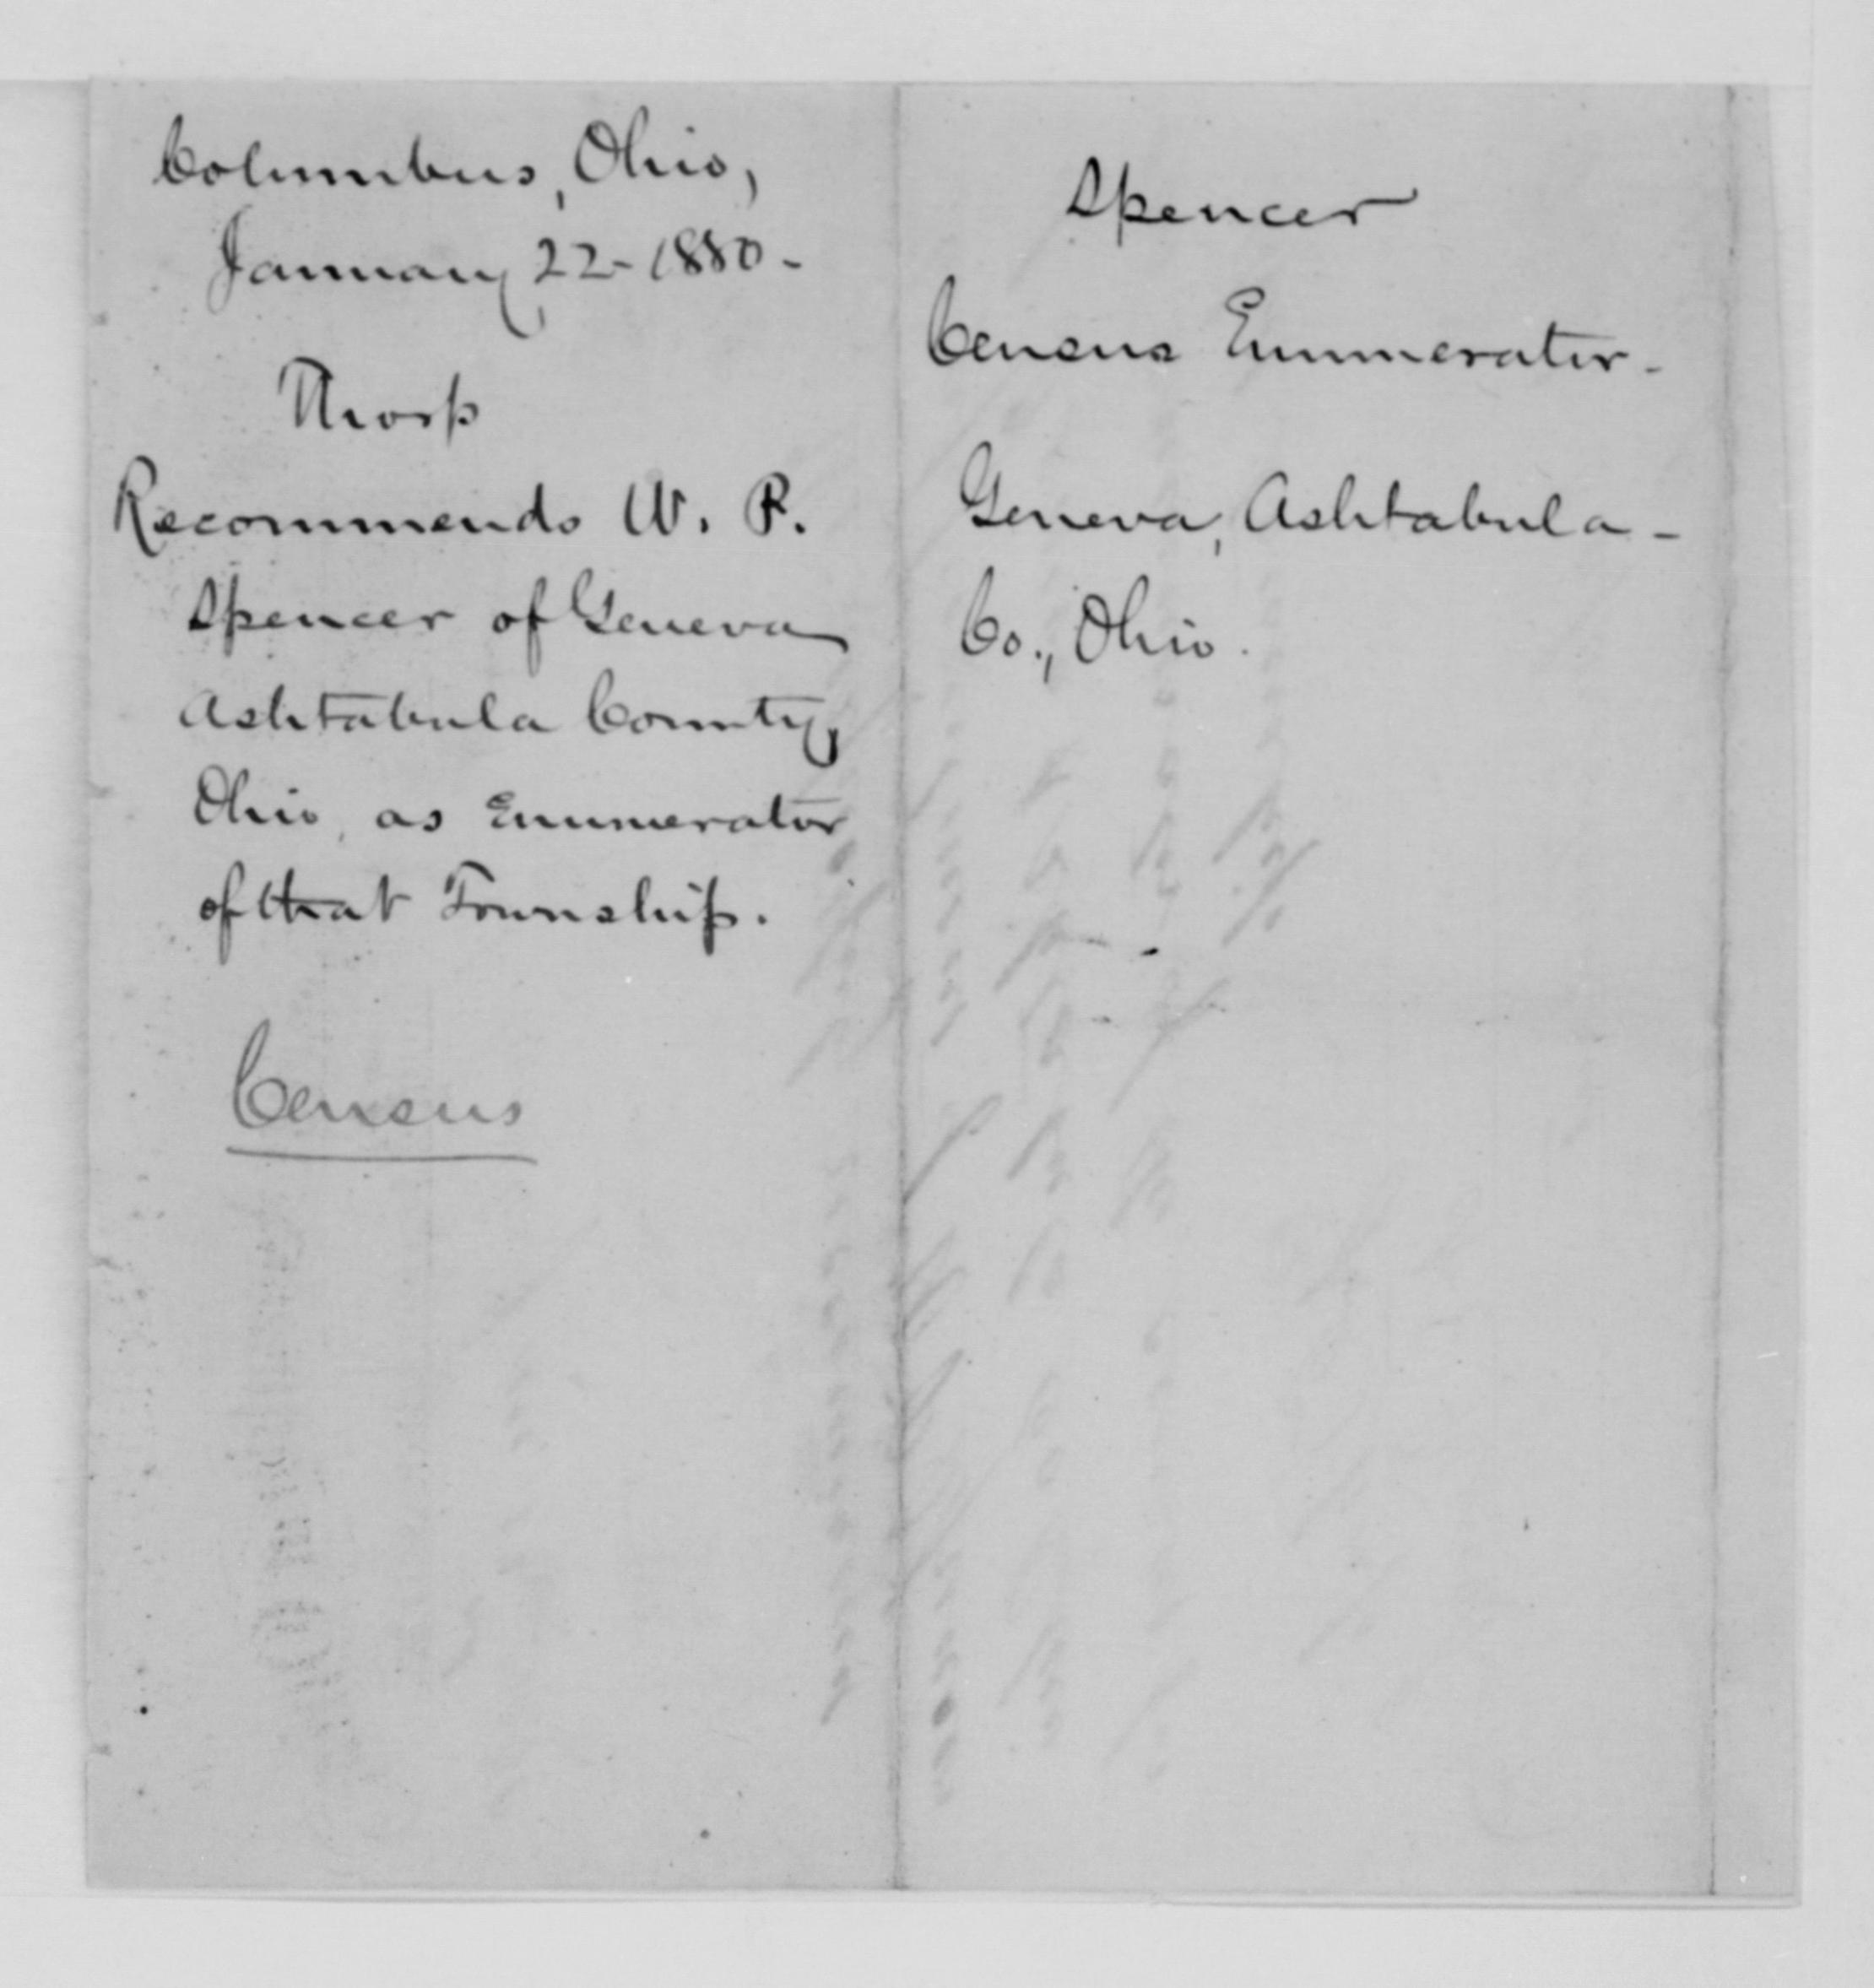 Columbus, Ohio,
January 22-1880-
Thorp
Recommends W. P.
Spencer of Geneva
Ashtabula County,
Ohio, as Enumerator
of that Township.
Census
Spencer
Census Enumerator-
Geneva, Ashtabula-
Co., Ohio.